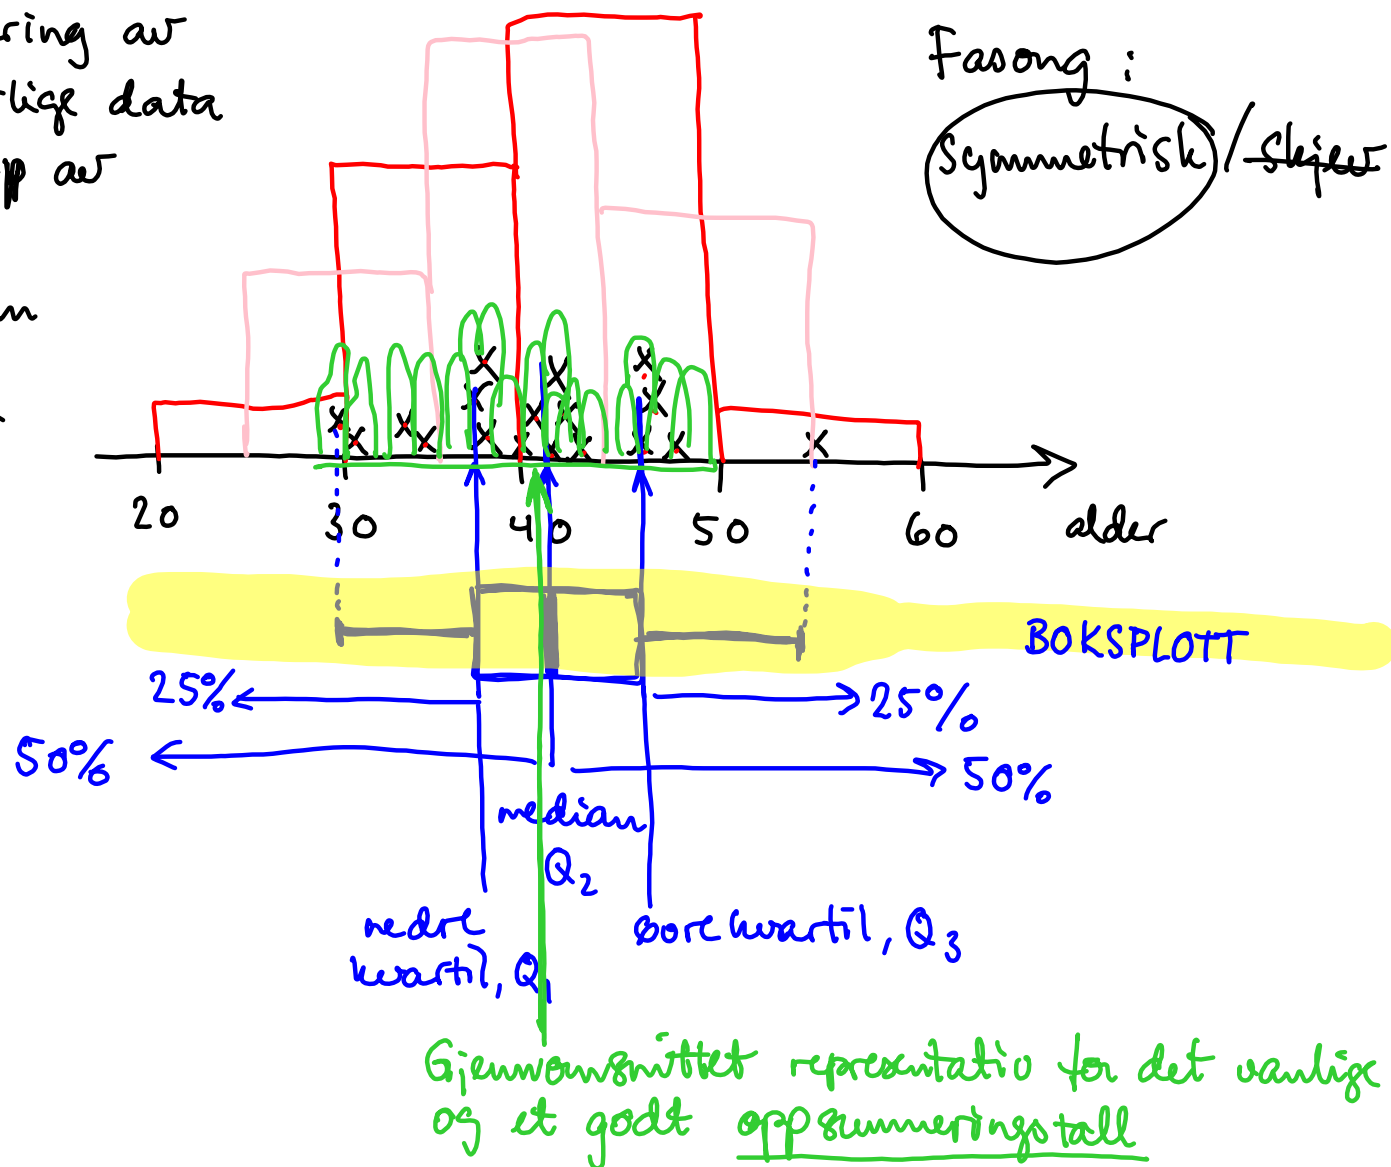 ring av
lige data
pp av
n
Fasong :
Symmetrisk / skjev
20 30 40 50 60 alder
BOKSPLOTT
25% 25%
50% 50%
median
Q2
nedre
kvartil, Q1
øvre kvartil, Q3
Gjennomsnittet representativ for det vanlige
og et godt oppsummeringstall